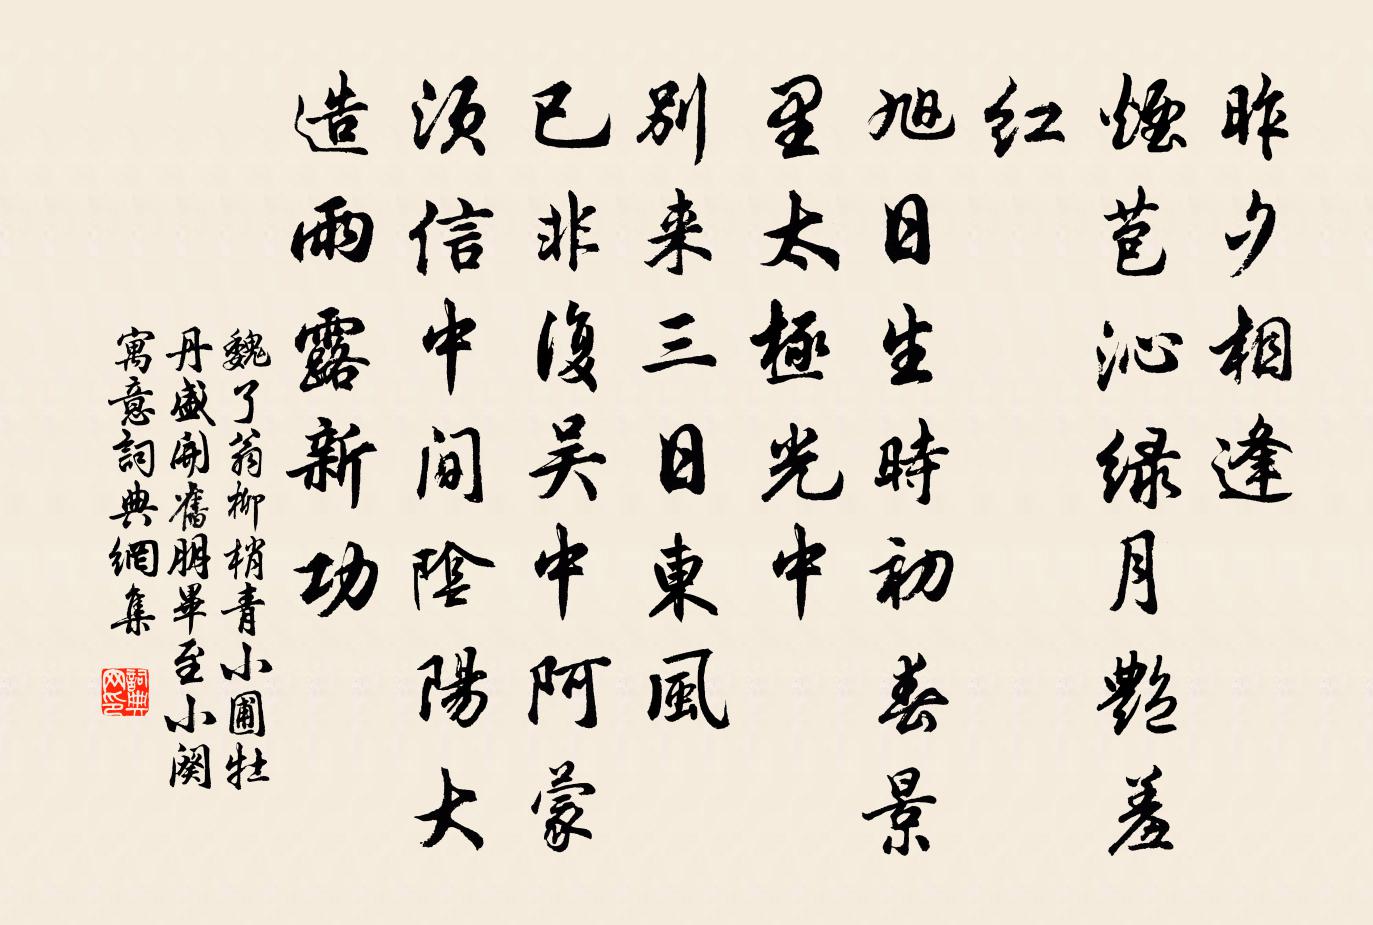 昨夕相逢
煙苞沁緑月艷羞
紅
旭日生時初春景
里太極光中
別来三日東風
已非復吴中阿蒙
須信中間陰陽大
造雨露新功
魏了翁柳梢青小圃牡
丹盛開舊朋畢至小闋
寓意詞典網集
詞典